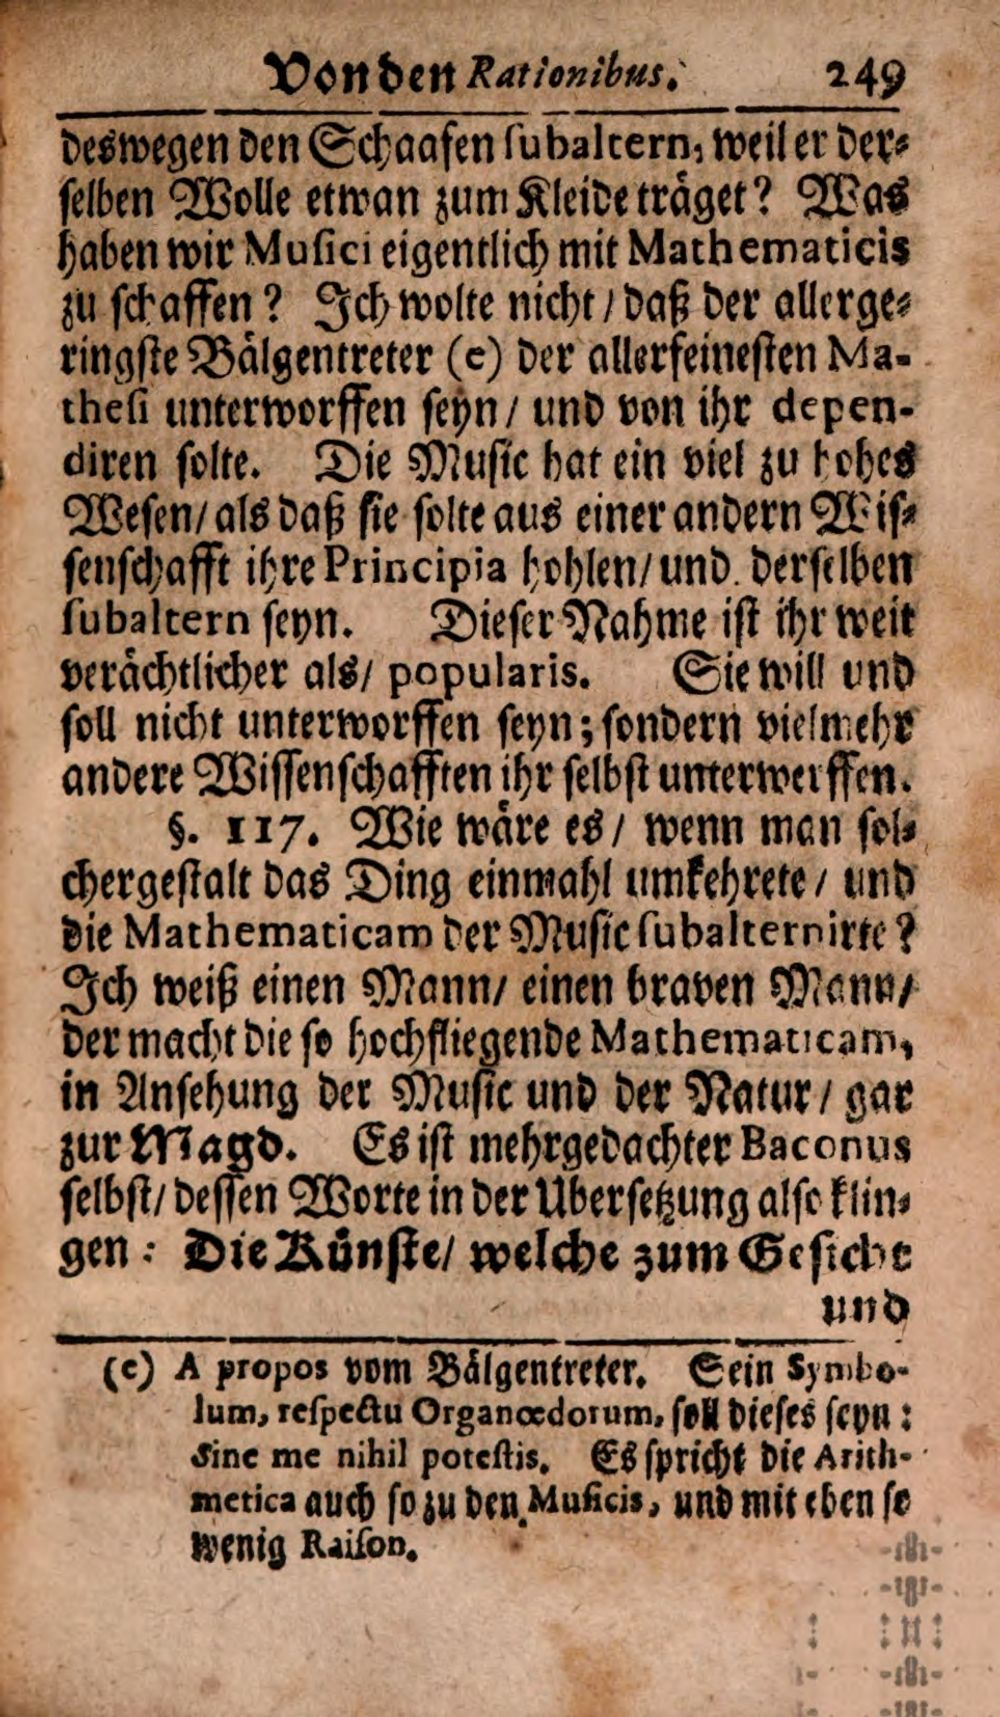 Von den Rationibus. 249
deswegen den Schaafen subaltern, weil er der⸗
selben Wolle etwan zum Kleide träget? Was
haben wir Musici eigentlich mit Mathematicis
zu schaffen? Ich wolte nicht / daß der allerge⸗
ringste Bälgentreter (e) der allerfeinesten Ma-
thesi unterworffen seyn / und von ihr depen-
diren solte. Die Music hat ein viel zu hohes
Wesen / als daß sie solte aus einer andern Wis⸗
senschafft ihre Principia hohlen / und derselben
subaltern seyn. Dieser Nahme ist ihr weit
verächtlicher als / popularis. Sie will und
soll nicht unterworffen seyn; sondern vielmehr
andere Wissenschafften ihr selbst unterwerffen.
§. 117. Wie wäre es / wenn man sol⸗
chergestalt das Ding einmahl umkehrete / und
die Mathematicam der Music subalternirte?
Ich weiß einen Mann / einen braven Mann /
der macht die so hochfliegende Mathematicam,
in Ansehung der Music und der Natur / gar
zur Magd. Es ist mehrgedachter Baconus
selbst / dessen Worte in der Ubersetzung also klin⸗
gen: Die Künste / welche zum Gesicht
und
(e) A propos vom Bälgentreter. Sein Symbo-
lum, respectu Organœdorum, soll dieses seyn:
Sine me nihil potestis. Es spricht die Arith-
metica auch so zu den Musicis, und mit eben so
wenig Raison.